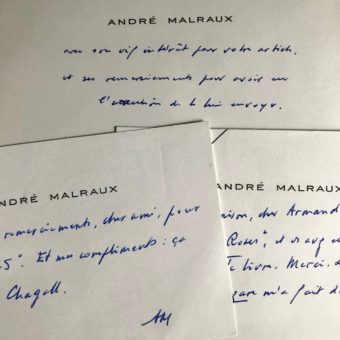 ANDRÉ MALRAUX
avec son vif intérêt pour votre article,
et ses remerciements pour avoir eu
l'attention de le lui envoyer.
ANDRÉ MALRAUX
remerciements, cher ami, pour
5". Et mes compliments : ça
Chagall.
AM
ANDRÉ MALRAUX
cher Armand
Roses", et
livre. Merci.
m'a fait